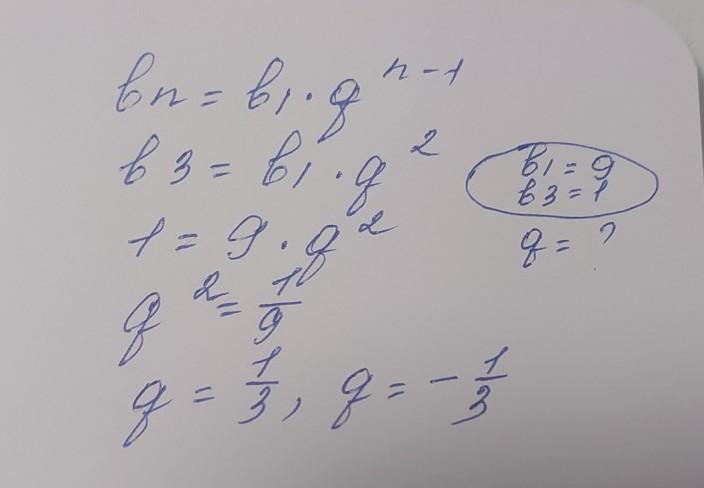 bn = b1 · q^n-1
b3 = b1 · q^2
1 = 9 · q^2
q^2 = 1/9
q = 1/3, q = - 1/3
b1 = 9
b3 = 1
q = ?